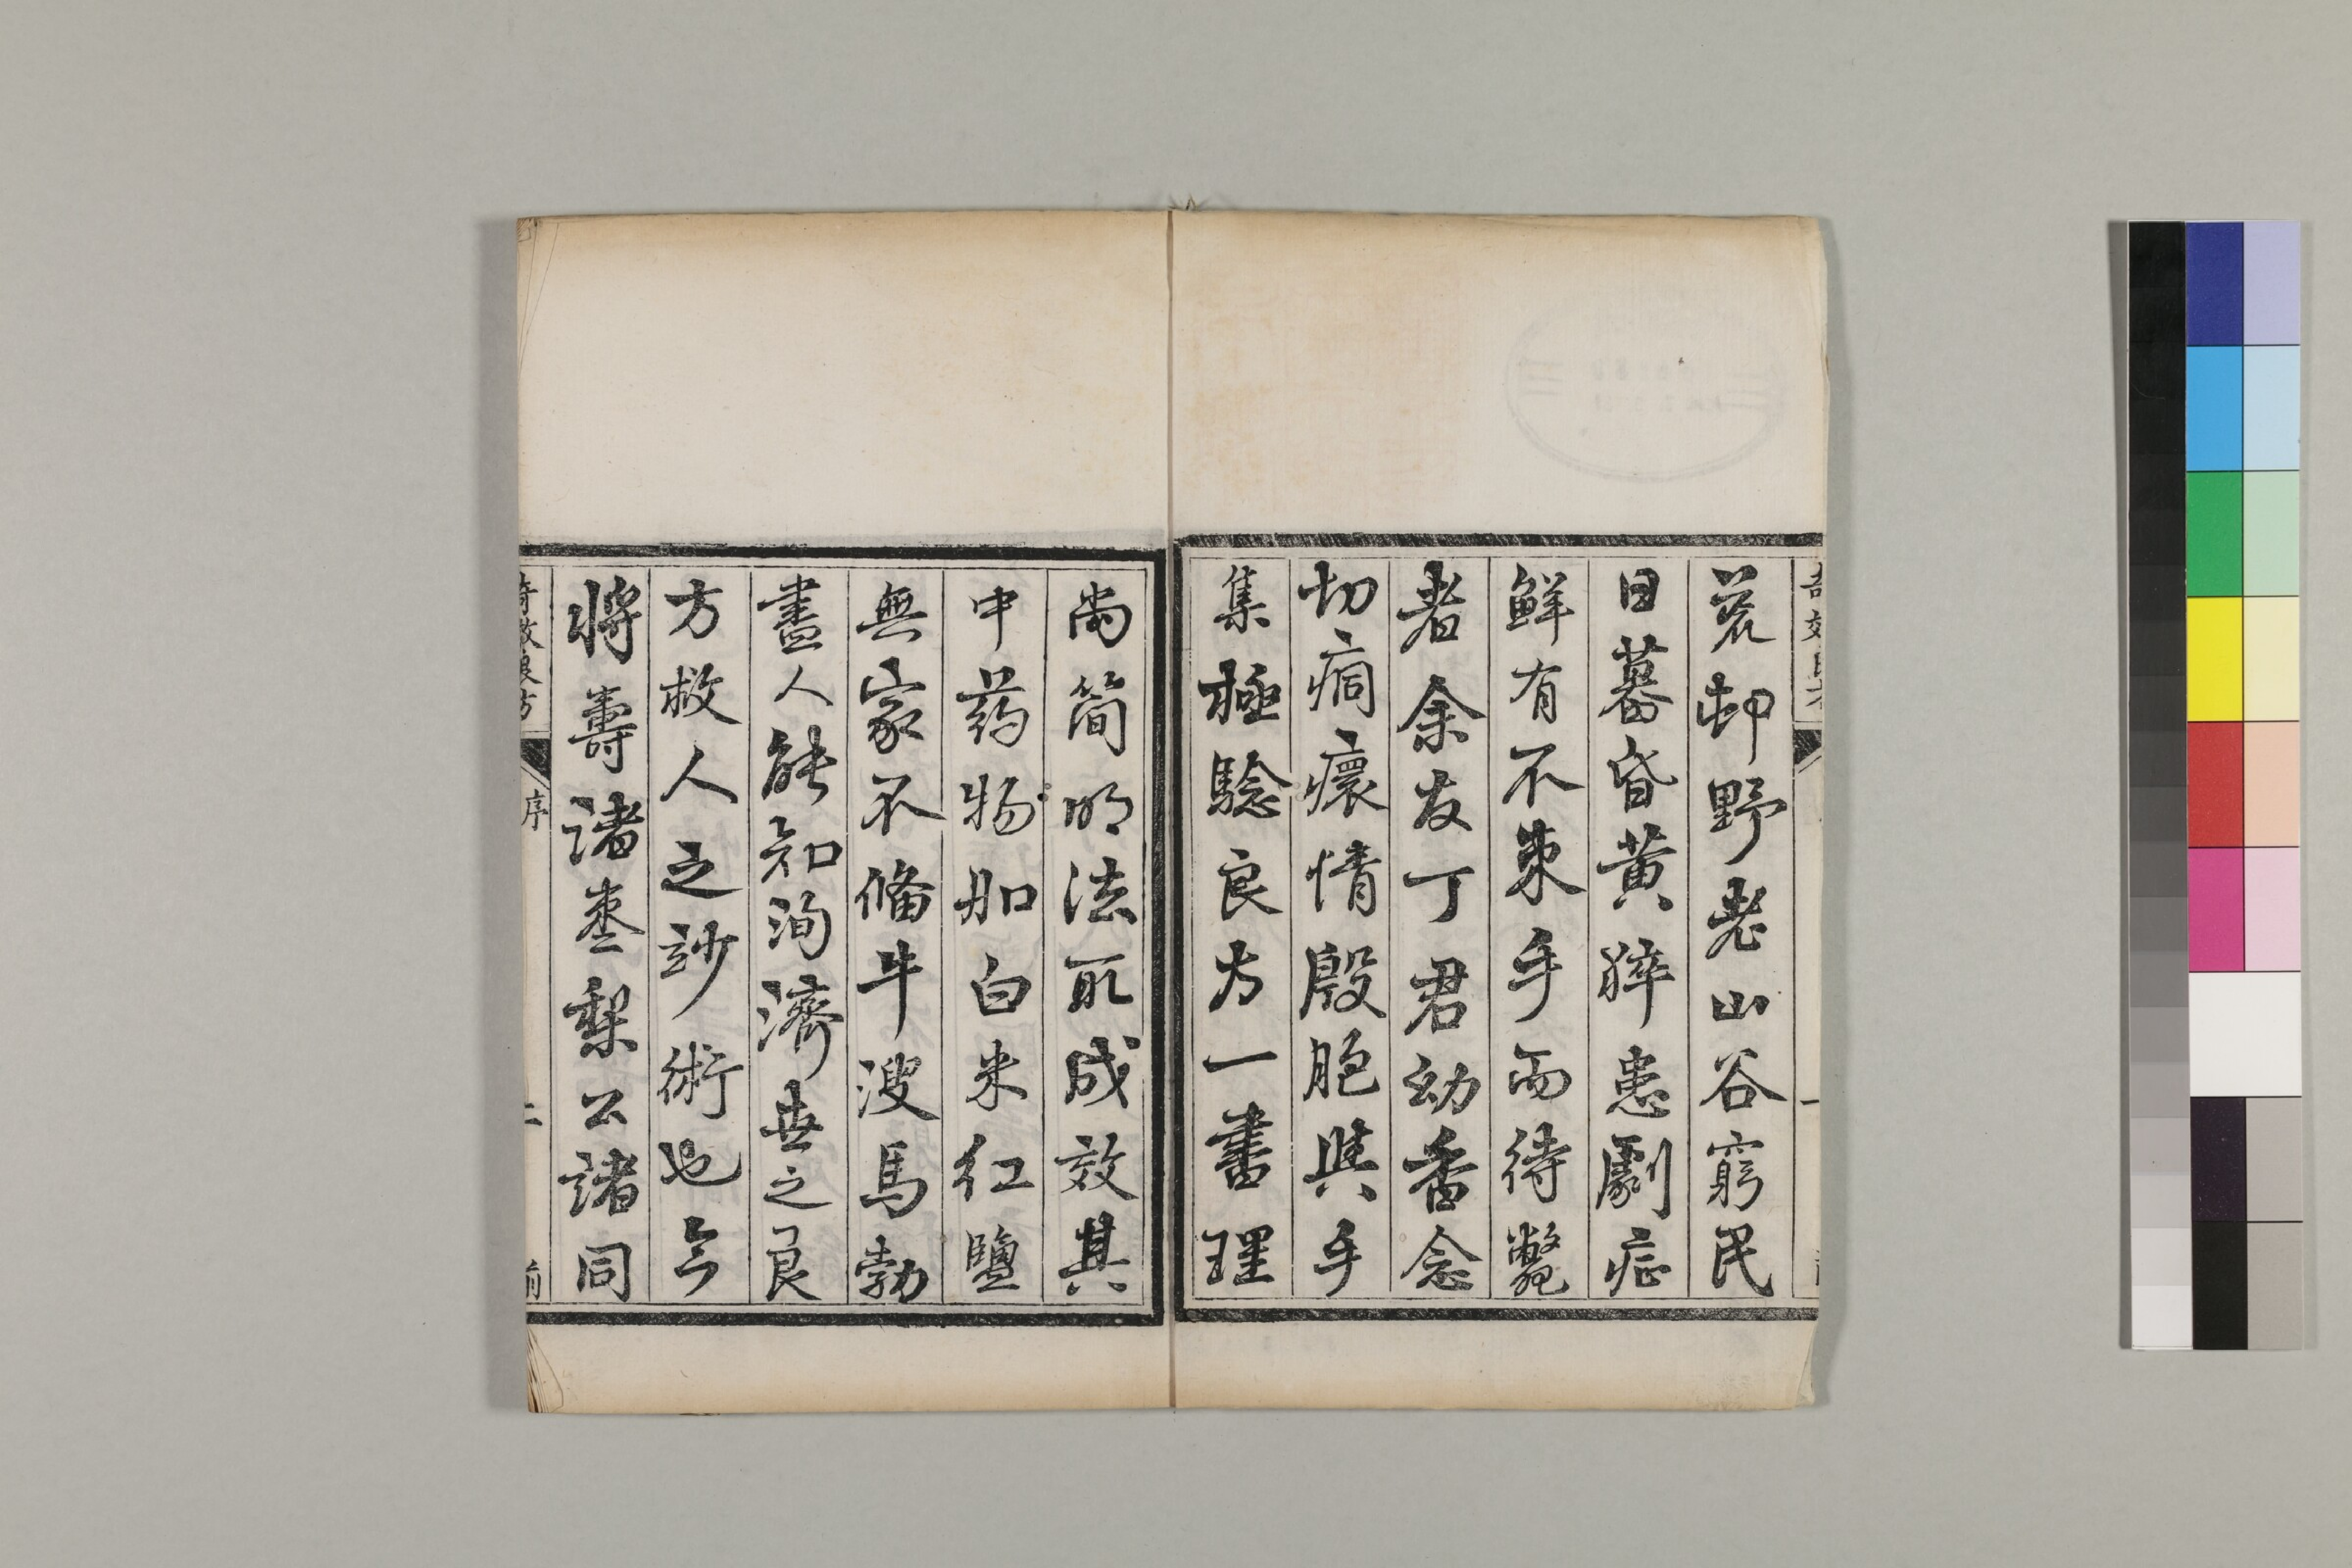 荒邨野老山谷窮民
日暮昏黃猝患劇症
鮮有不束手而待斃
者余友丁君幼香念
切痌瘝情殷胞與手
集極驗良方一書理
尚簡明法取成效其
中药物如白米紅鹽
無家不備牛溲馬勃
盡人能知洵濟世之良
方救人之妙術也今
將壽諸棗梨公諸同
奇效良方
序
二